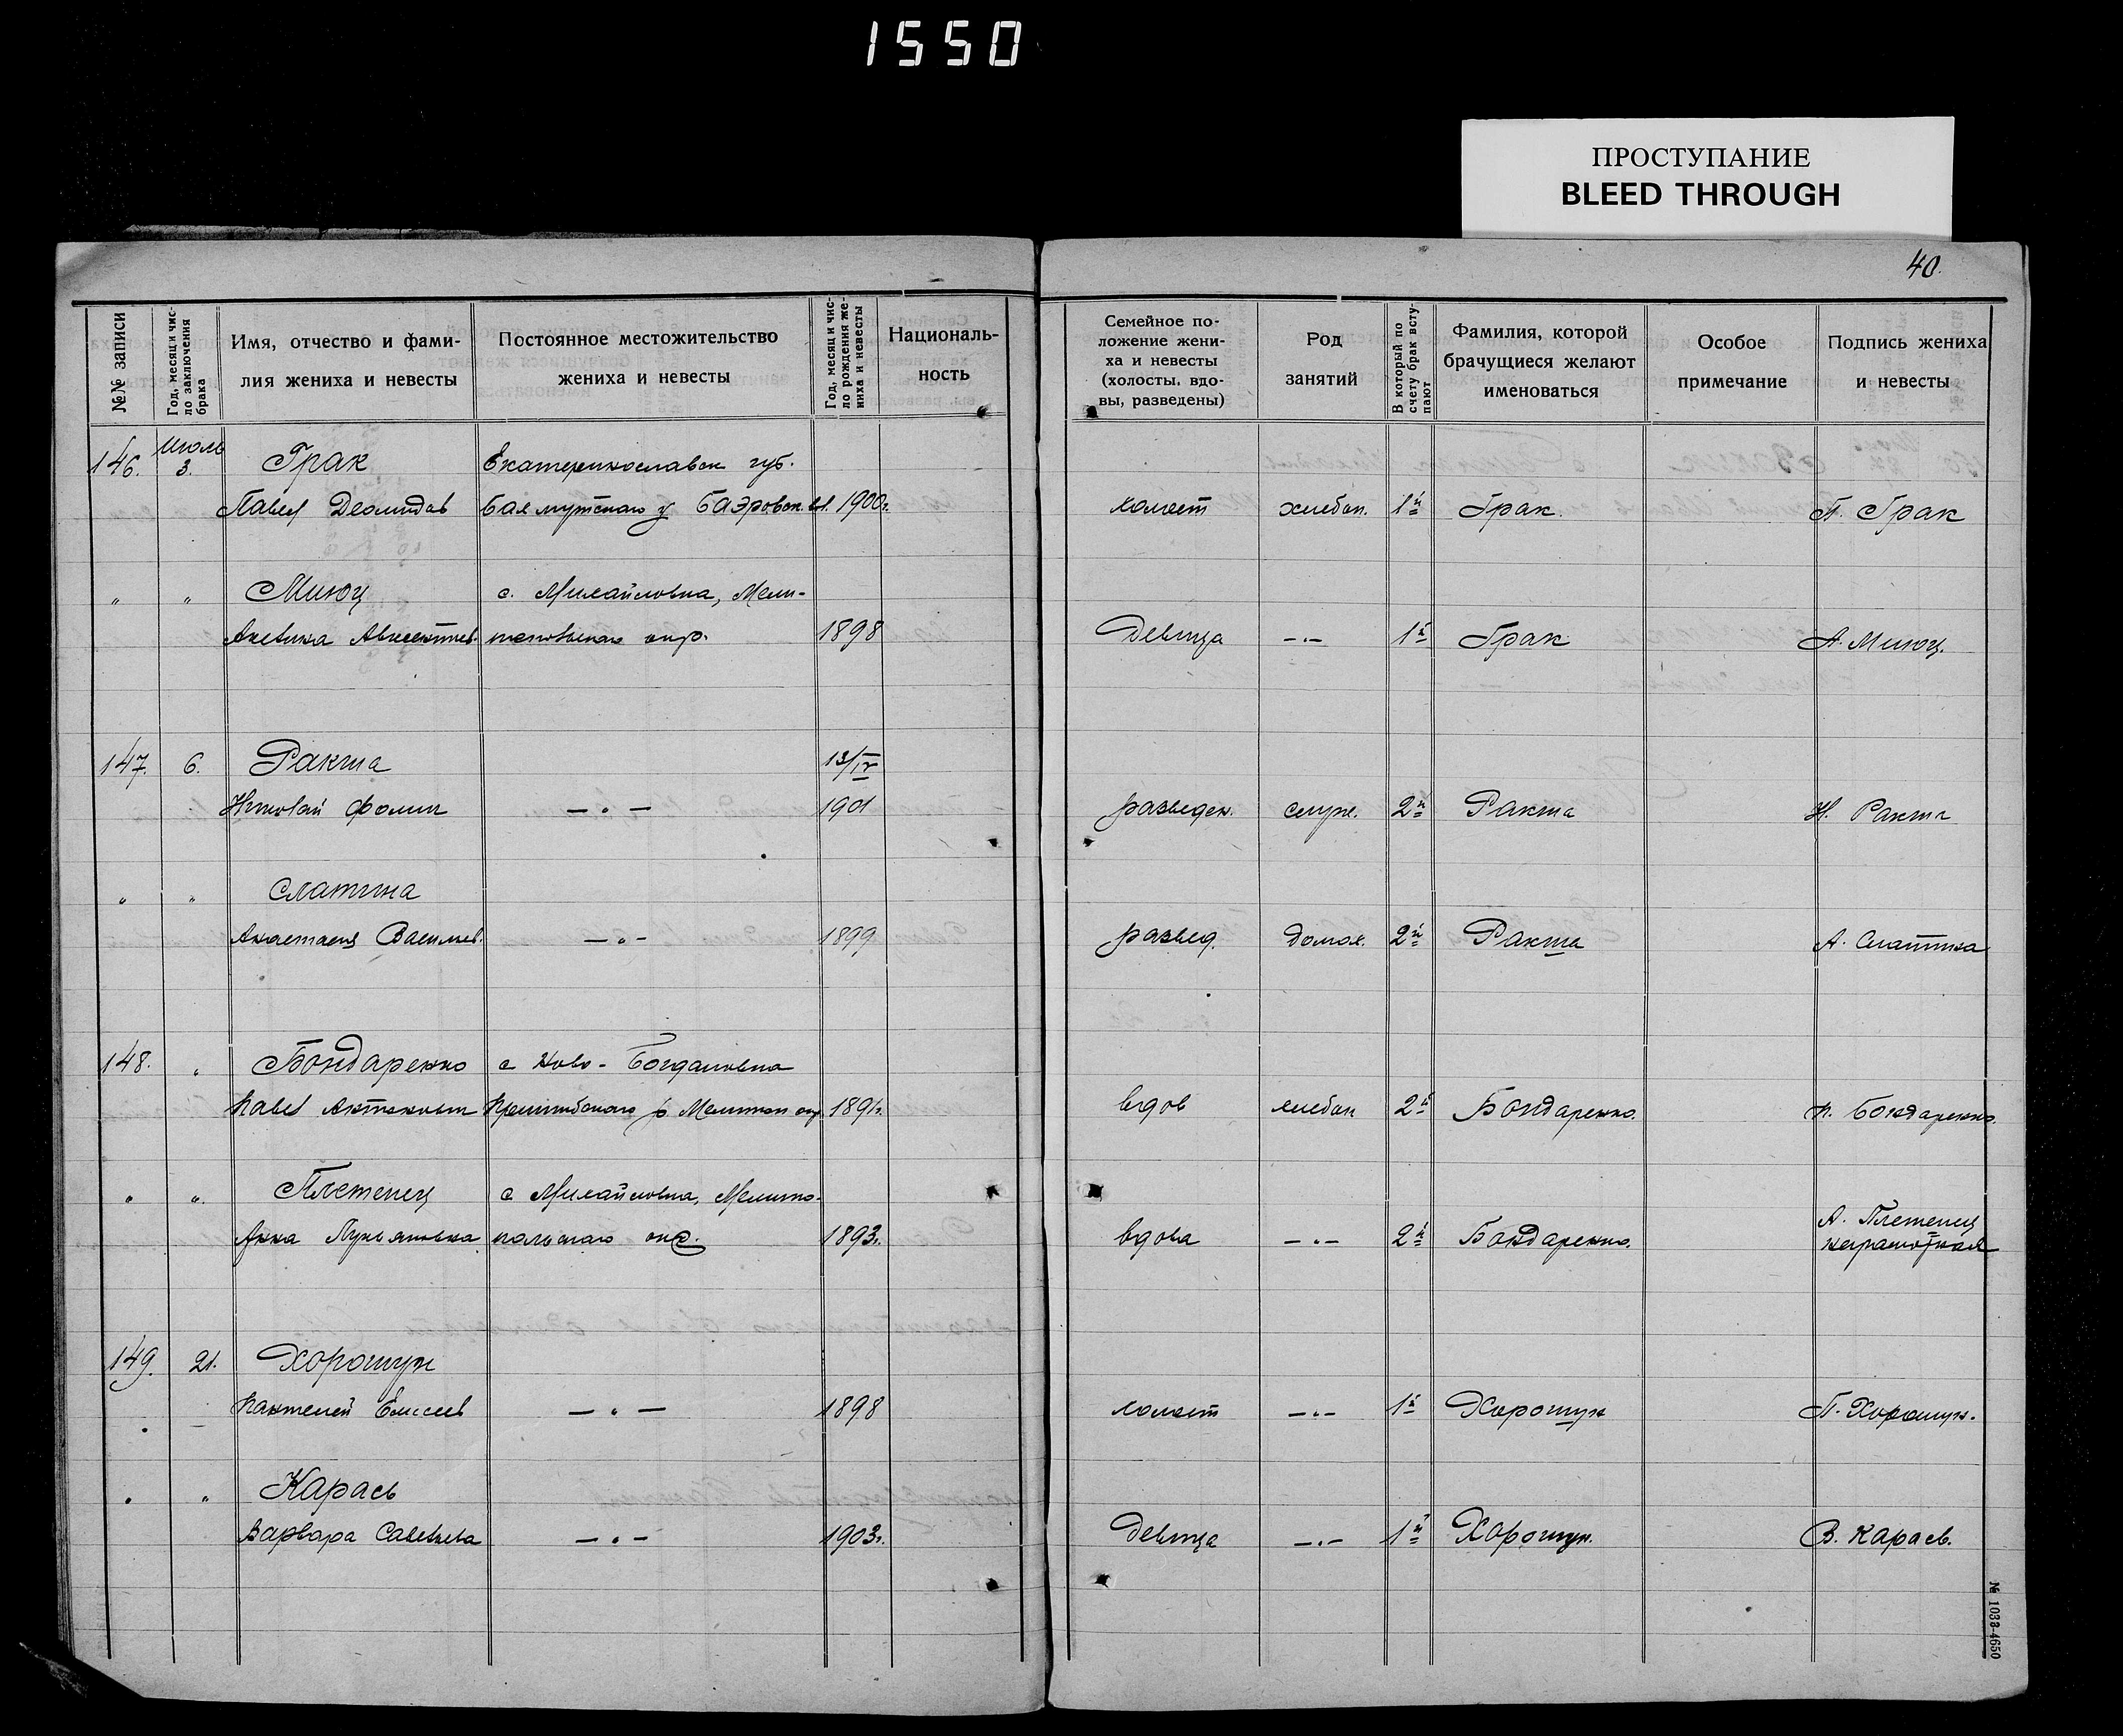 1550
ПРОСТУПАНИЕ
BLEED THROUGH
40.
№№ записи
Год, месяц и чис-
ло заключения
брака
Имя, отчество и фами-
лия жениха и невесты
Постоянное местожительство
жениха и невесты
Год, месяц и чис-
ло рождения же-
ниха и невесты
Националь-
ность
Семейное по-
ложение жени-
ха и невесты
(холосты, вдо-
вы, разведены)
Род
занятий
В который по
счету брак всту-
пают
Фамилия, которой
брачущиеся желают
именоваться
Особое
примечание
Подпись жениха
и невесты
146. Июль 3. Грак Екатеринославск губ.
Павел Бахмутского у 1900г. холост хлебоп. 1й Грак П. Грак
" " с. Михайловка, Мели-
топольского окр. 1898 Девица —"— 1й Грак А.
147. 6. Ракша 13/IV
Николай Фомич —"— 1901 разведен. служ. 2й Ракша Н. Ракша
" " Слатина
Анастасия Васильев. —"— 1899 развед. домох. 2й Ракша А. Слатина
148. " Бондаренко с Ново-Богдановка
Павел 1891г. вдов хлебоп 2й Бондаренко. П. Бондаренко.
" " Плетенец с Михайловка, Мелито-
Анна Лукьяновна польского окр. 1893г. вдова —"— 2й Бондаренко. А. Плетенец
неграмотная
149. 21. Хорошун
Пантелей Елисеев —"— 1898 холост —"— 1й Хорошун П. Хорошун.
" " Карась
Варвара Савельева —"— 1903г. Девица —"— 1й Хорошун. В. Карась.
№ 1033-4650